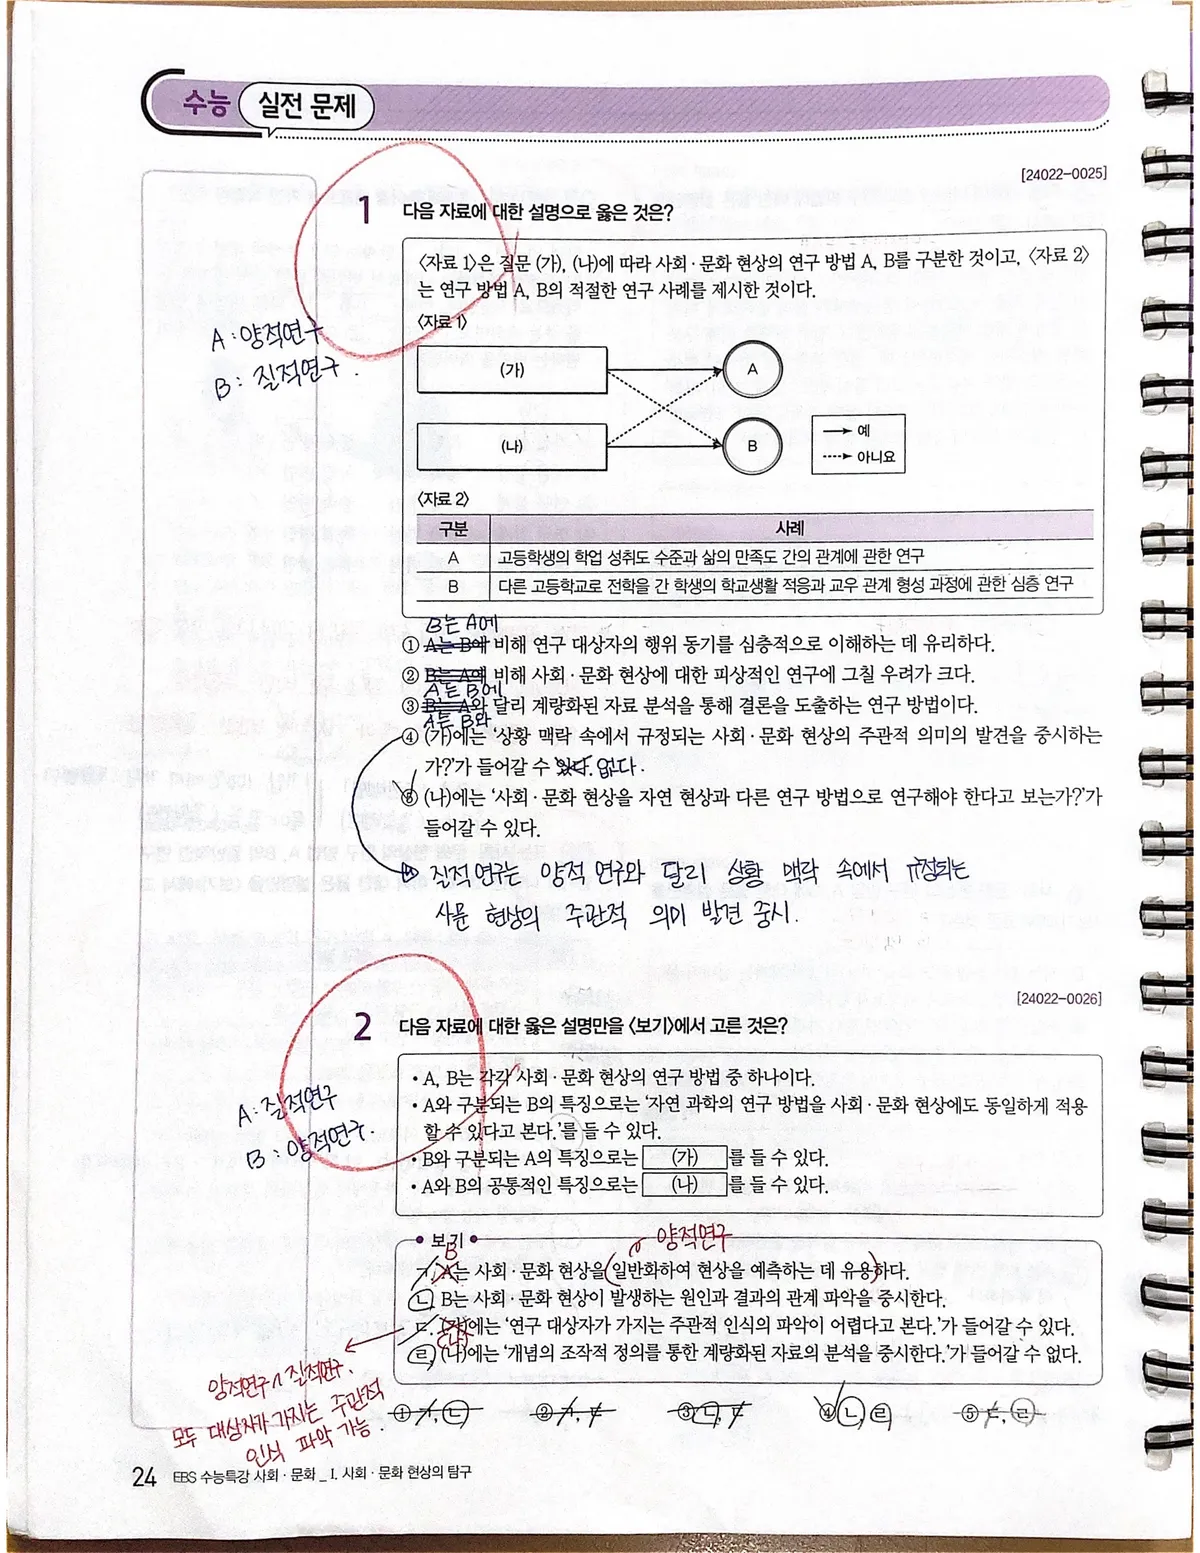 수능 실전 문제
[24022-0025]
1 다음 자료에 대한 설명으로 옳은 것은?
〈자료 1〉은 질문 (가), (나)에 따라 사회·문화 현상의 연구 방법 A, B를 구분한 것이고, 〈자료 2〉
는 연구 방법 A, B의 적절한 연구 사례를 제시한 것이다.
〈자료 1〉
A : 양적연구
B : 질적연구.
(가)
A
(나)
B
예
아니요
〈자료 2〉
구분 사례
A 고등학생의 학업 성취도 수준과 삶의 만족도 간의 관계에 관한 연구
B 다른 고등학교로 전학을 간 학생의 학교생활 적응과 교우 관계 형성 과정에 관한 심층 연구
B는 A에
① A는 B에 비해 연구 대상자의 행위 동기를 심층적으로 이해하는 데 유리하다.
② B는 A에 비해 사회·문화 현상에 대한 피상적인 연구에 그칠 우려가 크다.
A는 B에
③ B는 A와 달리 계량화된 자료 분석을 통해 결론을 도출하는 연구 방법이다.
A는 B와
④ (가)에는 '상황 맥락 속에서 규정되는 사회·문화 현상의 주관적 의미의 발견을 중시하는
가?'가 들어갈 수 있다. 없다.
⑤ (나)에는 '사회·문화 현상을 자연 현상과 다른 연구 방법으로 연구해야 한다고 보는가?'가
들어갈 수 있다.
질적연구는 양적 연구와 달리 상황 맥락 속에서 규정되는
사문 현상의 주관적 의미 발견 중시.
[24022-0026]
2 다음 자료에 대한 옳은 설명만을 〈보기〉에서 고른 것은?
• A, B는 각각 사회·문화 현상의 연구 방법 중 하나이다.
• A와 구분되는 B의 특징으로는 '자연 과학의 연구 방법을 사회·문화 현상에도 동일하게 적용
할 수 있다고 본다.'를 들 수 있다.
• B와 구분되는 A의 특징으로는 (가) 를 들 수 있다.
• A와 B의 공통적인 특징으로는 (나) 를 들 수 있다.
A : 질적연구
B : 양적연구.
보기
양적연구
B
ㄱ. A는 사회·문화 현상을 일반화하여 현상을 예측하는 데 유용하다.
ㄴ. B는 사회·문화 현상이 발생하는 원인과 결과의 관계 파악을 중시한다.
ㄷ. (가)에는 '연구 대상자가 가지는 주관적 인식의 파악이 어렵다고 본다.'가 들어갈 수 있다.
(나)
ㄹ. (나)에는 '개념의 조작적 정의를 통한 계량화된 자료의 분석을 중시한다.'가 들어갈 수 없다.
양적연구, 질적연구.
모두 대상자가 가지는 주관적
인식 파악 가능.
① ㄱ, ㄴ ② ㄱ, ㄷ ③ ㄴ, ㄷ ④ ㄴ, ㄹ ⑤ ㄷ, ㄹ
24 EBS 수능특강 사회·문화 _ Ⅰ. 사회·문화 현상의 탐구